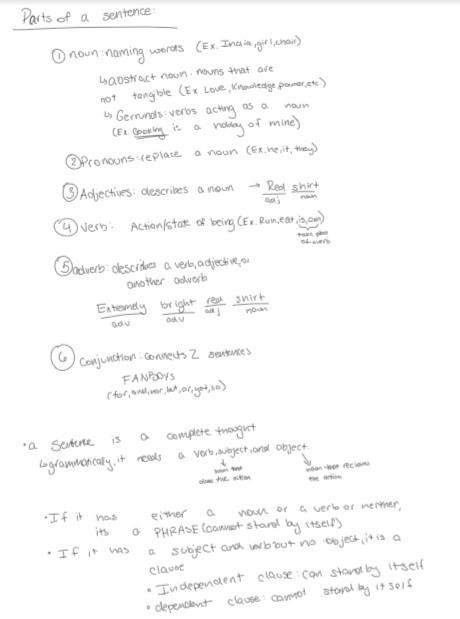 Parts of a sentence:
① noun: naming words (Ex. India, girl, chair)
↳ abstract noun: nouns that are
not tangible (Ex. Love, Knowledge, power, etc.)
↳ Gerrunds: verbs acting as a noun
(Ex. Cooking is a hobby of mine)
② Pronouns: replace a noun (Ex. he, it, they)
③ Adjectives: describes a noun → Red shirt
adj noun
④ Verb: Action/state of being (Ex. Run, eat, is, am)
take place
of a verb
⑤ adverb: describes a verb, adjective, or
another adverb
Extremely bright red shirt
adv adv adj noun
⑥ Conjunction: connects 2 sentences
FANBOYS
(for, and, nor, but, or, yet, so)
• a Sentence is a complete thought
↳ grammatically, it needs a verb, subject, and object.
noun that
does the action
noun that recieves
the action
• If it has either a noun or a verb or neither,
its a PHRASE (cannot stand by itself)
• If it has a subject and verb but no object, it is a
clause
• Independent clause: can stand by itself
• dependent clause: cannot stand by itself